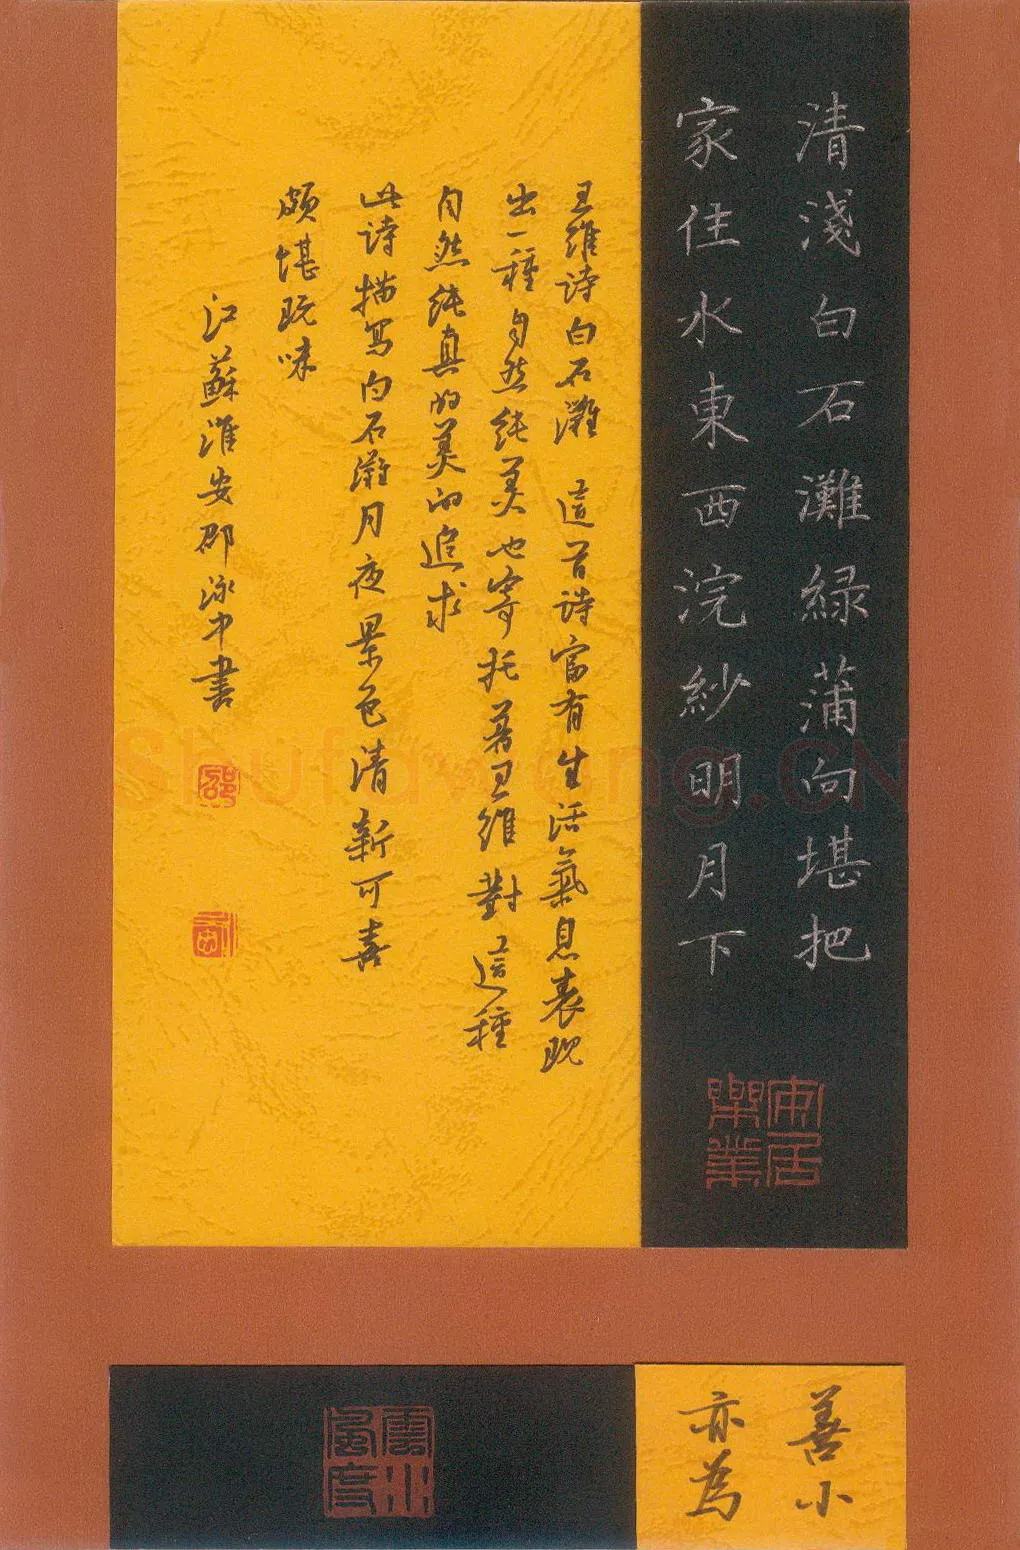 清淺白石灘緑蒲向堪把
家住水東西浣紗明月下
安居樂業
王維詩白石灘 這首詩富有生活氣息表現
出一種自然純美也寄托著王維對這種
自然純真的美的追求
此詩描写白石灘月夜景色清新可喜
頗堪玩味
江蘇淮安邵泳中書
邵
善小
亦為
雲水風度
Shufawang.CN